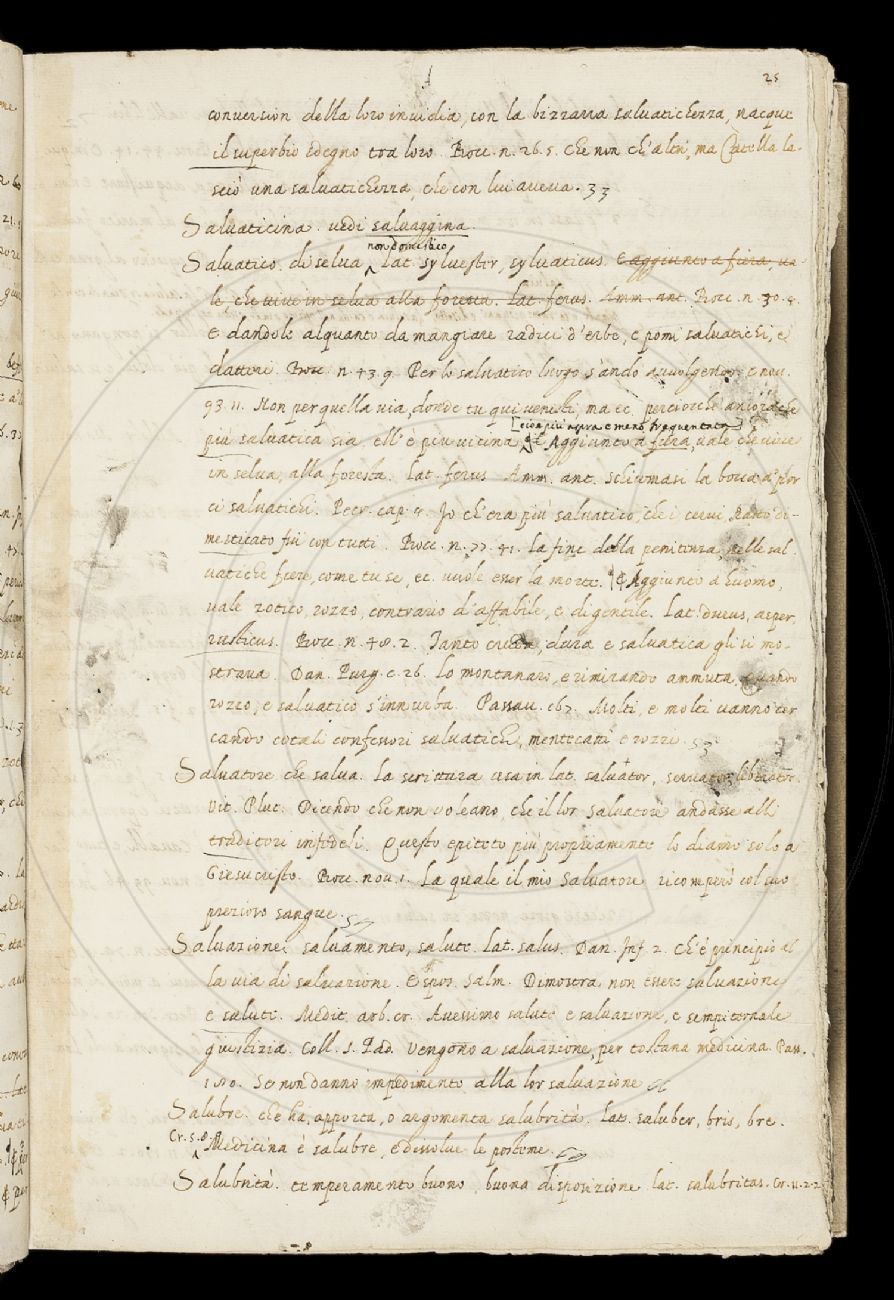 25
conversion della loro invidia, con la bizzarra salvatichezza, nacque
il superbio sdegno tra loro. Bocc. n. 26. 5. Che non ch'altri, ma Catella la-
sciò una salvatichezza, che con lui aveva. 33
Salvaticina. vedi salvaggina.
non domestico
Salvatico. di selva lat. sylvester, sylvaticus. E aggiunto a fiera, va-
le, che vive in selva alla foresta. Lat. ferus. Amm. ant. Bocc. n. 30. 4.
E dandole alquanto da mangiare radici d'erbe, e pomi salvatichi, e
dattori. Bocc. n. 43. 9. Per lo salvatico luogo s'andò avvolgendo. e nov.
93. 11. Non per quella via, donde tu qui venesti, ma ec. perciocchè ancorachè
[cioè più aspra e meno frequentata]
più salvatica sia, ell' è più vicina, Aggiunto a fiera, vale che vive
in selva, alla foresta. Lat. ferus Amm. ant. Schiumasi la bocca a' por
ci salvatichi. Petr. cap. 4. Io ch'era più salvatico, che i cervi, Ratto di-
mesticato fui con tutti. Bocc. n. 77. 41. La fine della penitenza nelle sal-
vatiche fiere, come tu se, ec. vuole esser la morte. ¶ Aggiunto a huomo,
vale zotico, rozzo, contrario d'affabile, e di gentile. Lat. durus, asper,
rusticus. Bocc. n. 48. 2. Tanto cruda, dura e salvatica gli si mo-
strava. Dan. Purg. c. 26. Lo montanaro, e rimirando ammuta, Quando
rozzo, e salvatico s'innurba. Passav. 167. Molti, e molti vanno cer
cando cotali confessori salvatichi, mentecatti e rozzi.
Salvatore che salva. La scrittura usa in lat. salvator, servator, liberator.
Vit. Plut. Dicendo che non voleano, che il lor Salvatore andasse alli
traditori infedeli. Questo epiteto più propriamente lo diamo solo a
Giesucristo. Bocc. nov. 1. La quale il mio Salvatore ricomperò col suo
prezioso sangue.
Salvazione. salvamento, salute. Lat. salus. Dan. Inf. 2. Ch'è principio al
la via di salvazione. Espos. Salm. Dimostra non essere salvazione
e salute. Medit. arb. cr. Avessimo salute e salvazione, e sempiternale
giustizia. Coll. S. Pad. Vengono a salvazione, per cotana medicina. Pass.
180. Se non danno impedimento alla lor salvazione
Salubre. che ha, apporta, o argomenta salubrità. Lat. saluber, bris, bre.
Cr. 5. 8.
Medicina è salubre, e dissolve le posteme.
Salubrità. temperamento buono, buona disposizione lat. salubritas. Cr. 11. 2. 2